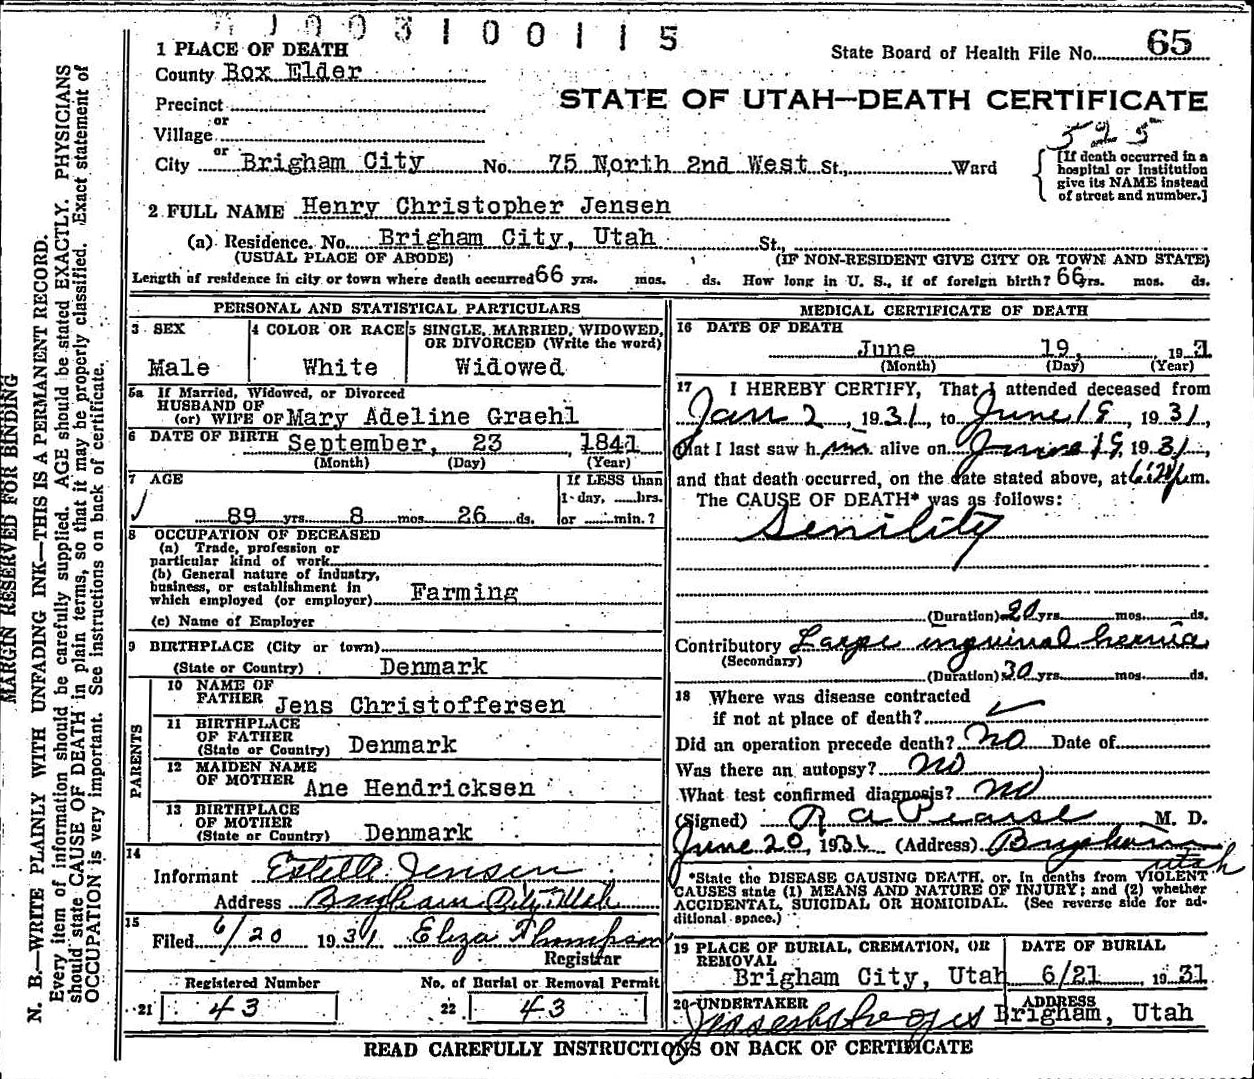 1003100115
1 PLACE OF DEATH
State Board of Health File No. 65
County Box Elder
STATE OF UTAH—DEATH CERTIFICATE
Precinct
or
Village
or
City Brigham City No. 75 North 2nd West St., Ward
525
[If death occurred in a
hospital or institution
give its NAME instead
of street and number.]
2 FULL NAME Henry Christopher Jensen
(a) Residence. No. Brigham City, Utah St.,
(USUAL PLACE OF ABODE) (IF NON-RESIDENT GIVE CITY OR TOWN AND STATE)
Length of residence in city or town where death occurred 66 yrs. mos. ds. How long in U. S., if of foreign birth? 66 yrs. mos. ds.
PERSONAL AND STATISTICAL PARTICULARS
3 SEX
Male
4 COLOR OR RACE
White
5 SINGLE, MARRIED, WIDOWED,
OR DIVORCED (Write the word)
Widowed
5a If Married, Widowed, or Divorced
HUSBAND OF
(or) WIFE OF Mary Adeline Graehl
6 DATE OF BIRTH September, 23 1841
(Month) (Day) (Year)
7 AGE
89 yrs. 8 mos. 26 ds.
If LESS than
1 day, hrs.
or min.?
8 OCCUPATION OF DECEASED
(a) Trade, profession or
particular kind of work
(b) General nature of industry,
business, or establishment in
which employed (or employer) Farming
(c) Name of Employer
9 BIRTHPLACE (City or town)
(State or Country) Denmark
PARENTS
10 NAME OF
FATHER Jens Christoffersen
11 BIRTHPLACE
OF FATHER
(State or Country) Denmark
12 MAIDEN NAME
OF MOTHER Ane Hendricksen
13 BIRTHPLACE
OF MOTHER
(State or Country) Denmark
14
Informant Estelle Jensen
Address Brigham City Utah
15
Filed 6/20 1931 Eliza Thompson
Registrar
Registered Number
21 43
No. of Burial or Removal Permit
22 43
MEDICAL CERTIFICATE OF DEATH
16 DATE OF DEATH
June 19, 1931
(Month) (Day) (Year)
17 I HEREBY CERTIFY, That I attended deceased from
Jan 2, 1931, to June 19, 1931,
that I last saw him alive on June 19, 1931,
and that death occurred, on the date stated above, at m.
The CAUSE OF DEATH* was as follows:
Senility
(Duration) 20 yrs. mos. ds.
Contributory Large inguinal hernia
(Secondary)
(Duration) 30 yrs. mos. ds.
18 Where was disease contracted
if not at place of death?
Did an operation precede death? no Date of
Was there an autopsy? no
What test confirmed diagnosis? no
(Signed) R A Pearse M. D.
June 20, 1931 (Address) Brigham
Utah
*State the DISEASE CAUSING DEATH, or, in deaths from VIOLENT
CAUSES state (1) MEANS AND NATURE OF INJURY; and (2) whether
ACCIDENTAL, SUICIDAL OR HOMICIDAL. (See reverse side for ad-
ditional space.)
19 PLACE OF BURIAL, CREMATION, OR
REMOVAL
Brigham City, Utah
DATE OF BURIAL
6/21 1931
20 UNDERTAKER
ADDRESS
Brigham, Utah
READ CAREFULLY INSTRUCTIONS ON BACK OF CERTIFICATE
MARGIN RESERVED FOR BINDING
N. B.—WRITE PLAINLY WITH UNFADING INK—THIS IS A PERMANENT RECORD.
Every item of information should be carefully supplied. AGE should be stated EXACTLY. PHYSICIANS
should state CAUSE OF DEATH in plain terms, so that it may be properly classified. Exact statement of
OCCUPATION is very important. See instructions on back of certificate.